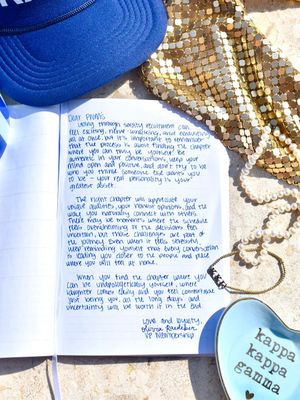 Dear PNMs,
Going through sorority recruitment can
feel exciting, nerve-wracking, and exhausting
all at once, but it's important to remember
that the process is about finding the chapter
where you can truly be yourself! Be
authentic in your conversations, keep your
mind open and positive, and don't try to be
who you think someone else wants you
to be - your real personality is your
greatest asset.
The right chapter will appreciate your
unique qualities, your honest opinions, and the
way you naturally connect with others.
There may be moments where the schedule
feels overwhelming or the decisions feel
uncertain, but those challenges are part of
the journey. Even when it feels stressful,
keep reminding yourself that every conversation
is leading you closer to the people and place
where you will feel at home.
When you find the chapter where you
can be unapologetically yourself, where
laughter comes easily and you feel comfortable
just being you, all the long days and
uncertainty will be worth it in the end.
Love and loyalty,
Olivia
VP Membership
kappa
kappa
gamma